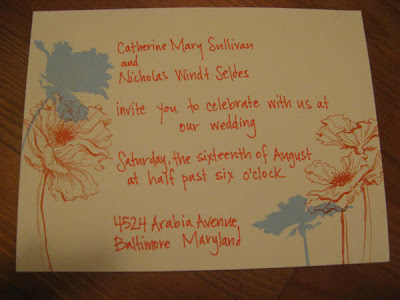 Catherine Mary Sullivan
and
Nicholas Windt Seldes
invite you to celebrate with us at
our wedding
Saturday, the sixteenth of August
at half past six o'clock
4524 Arabia Avenue,
Baltimore Maryland